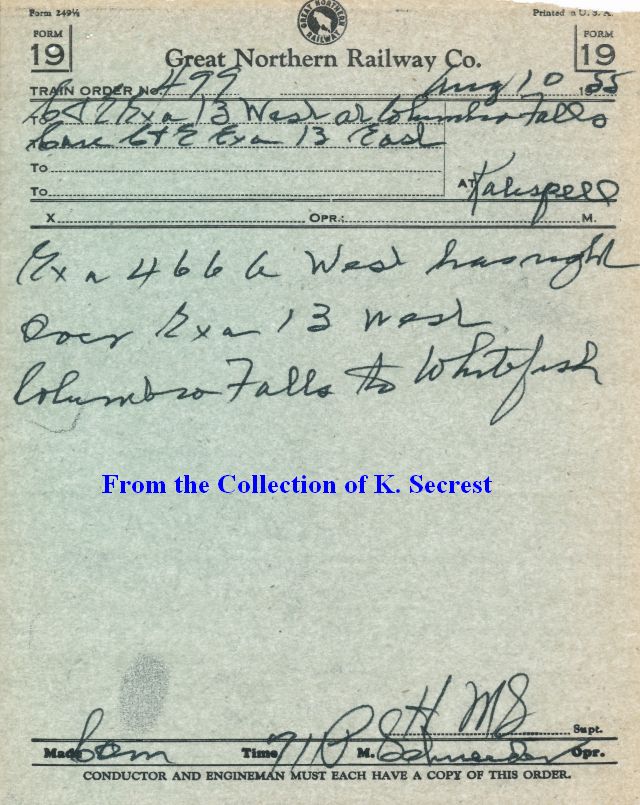 Form 249½
Printed in U. S. A.
GREAT NORTHERN RAILWAY
FORM 19
Great Northern Railway Co.
FORM 19
TRAIN ORDER No. 499 Aug 10 1955
To C&E Exa 13 West at Columbia Falls
To Care C&E Exa 13 East
To
To
AT Kalispell
X OPR.: M.
Exa 466 West has right
over Exa 13 West
Columbia Falls to Whitefish
From the Collection of K. Secrest
Supt.
Made Com Time 711 P M. Schneider Opr.
CONDUCTOR AND ENGINEMAN MUST EACH HAVE A COPY OF THIS ORDER.